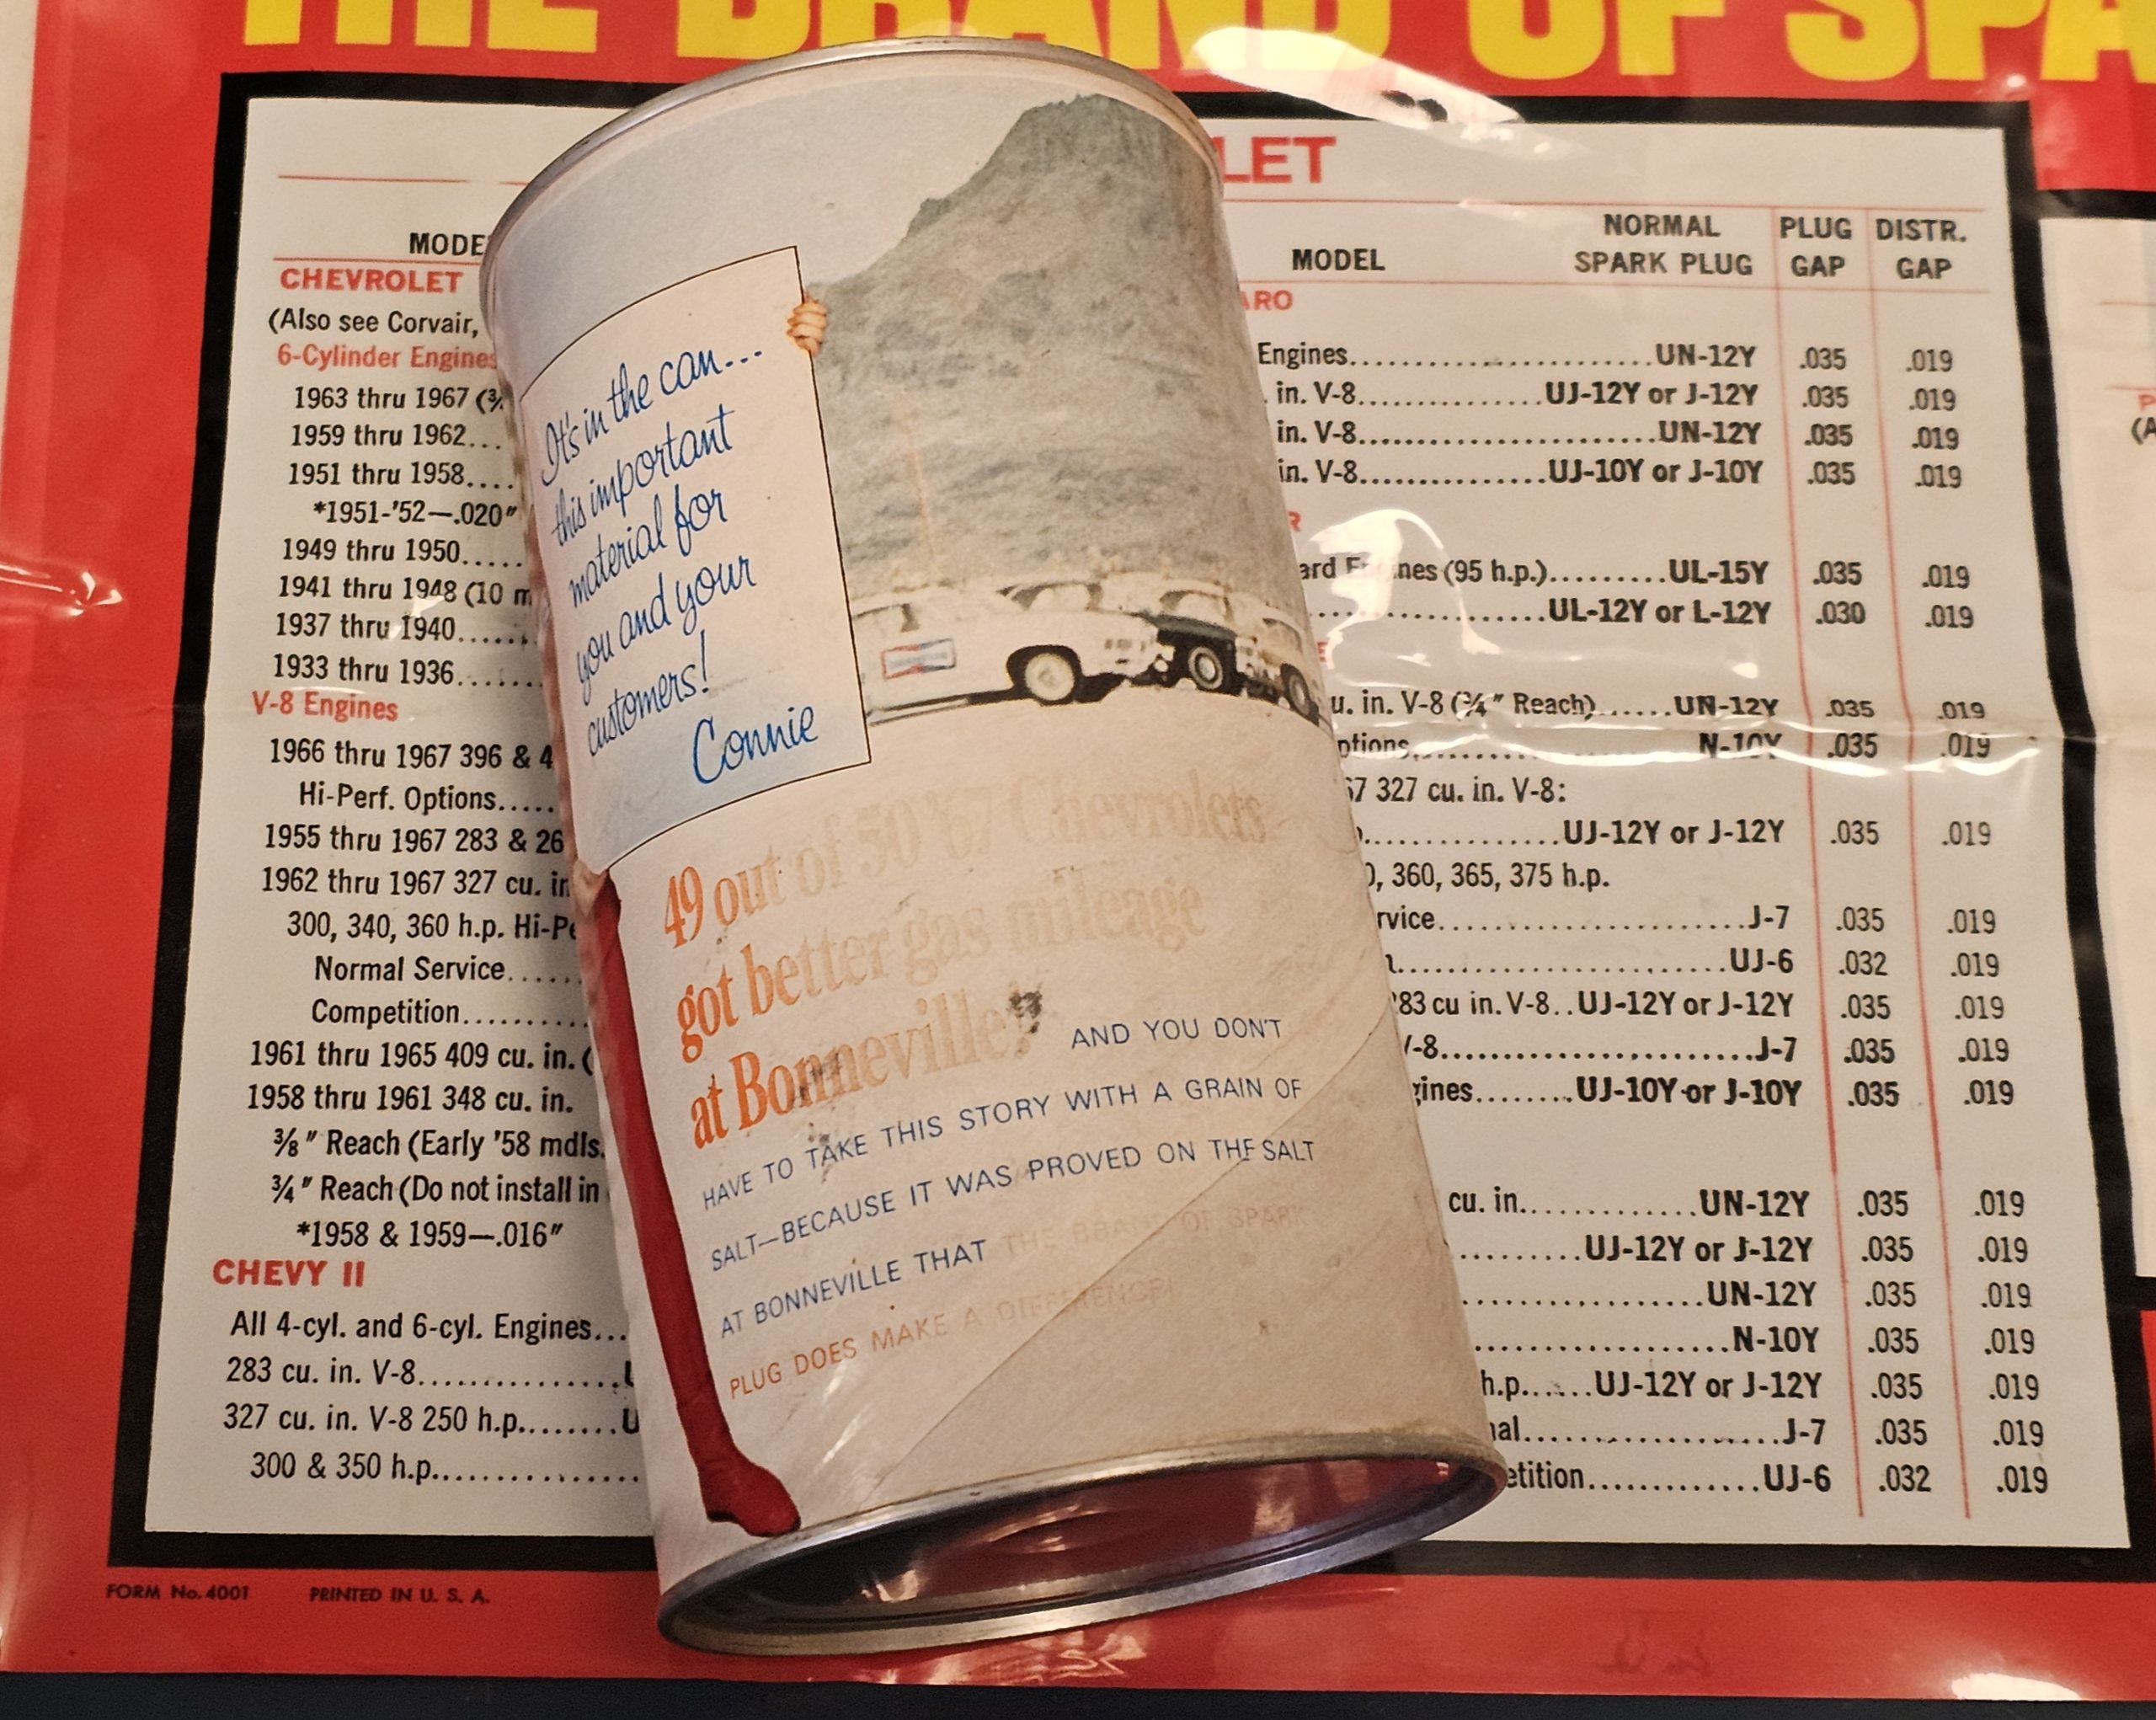 THE BRAND OF SPA
LET
MODE
CHEVROLET
(Also see Corvair,
6-Cylinder Engines
1963 thru 1967 (¾
1959 thru 1962...
1951 thru 1958....
*1951-'52—.020"
1949 thru 1950.....
1941 thru 1948 (10 m
1937 thru 1940......
1933 thru 1936......
V-8 Engines
1966 thru 1967 396 & 4
Hi-Perf. Options.....
1955 thru 1967 283 & 26
1962 thru 1967 327 cu. in
300, 340, 360 h.p. Hi-Pe
Normal Service.....
Competition.........
1961 thru 1965 409 cu. in. (
1958 thru 1961 348 cu. in.
⅜" Reach (Early '58 mdls.
¾" Reach (Do not install in
*1958 & 1959—.016"
CHEVY II
All 4-cyl. and 6-cyl. Engines...
283 cu. in. V-8................U
327 cu. in. V-8 250 h.p........U
300 & 350 h.p................
It's in the can...
this important
material for
you and your
customers!
Connie
49 out of 50 '67 Chevrolets
got better gas mileage
at Bonneville!
AND YOU DON'T
HAVE TO TAKE THIS STORY WITH A GRAIN OF
SALT—BECAUSE IT WAS PROVED ON THE SALT
AT BONNEVILLE THAT THE BRAND OF SPARK
PLUG DOES MAKE A DIFFERENCE!
MODEL NORMAL SPARK PLUG PLUG GAP DISTR. GAP
ARO
Engines........................UN-12Y .035 .019
. in. V-8...............UJ-12Y or J-12Y .035 .019
in. V-8........................UN-12Y .035 .019
in. V-8...............UJ-10Y or J-10Y .035 .019
R
ard Engines (95 h.p.).........UL-15Y .035 .019
................UL-12Y or L-12Y .030 .019
u. in. V-8 (¾" Reach)......UN-12Y .035 .019
ptions........................N-10Y .035 .019
67 327 cu. in. V-8:
...............UJ-12Y or J-12Y .035 .019
0, 360, 365, 375 h.p.
rvice........................J-7 .035 .019
n........................UJ-6 .032 .019
283 cu in. V-8..UJ-12Y or J-12Y .035 .019
V-8........................J-7 .035 .019
gines........UJ-10Y or J-10Y .035 .019
cu. in.............UN-12Y .035 .019
.........UJ-12Y or J-12Y .035 .019
................UN-12Y .035 .019
................N-10Y .035 .019
h.p......UJ-12Y or J-12Y .035 .019
nal................J-7 .035 .019
etition.............UJ-6 .032 .019
FORM No. 4001 PRINTED IN U. S. A.